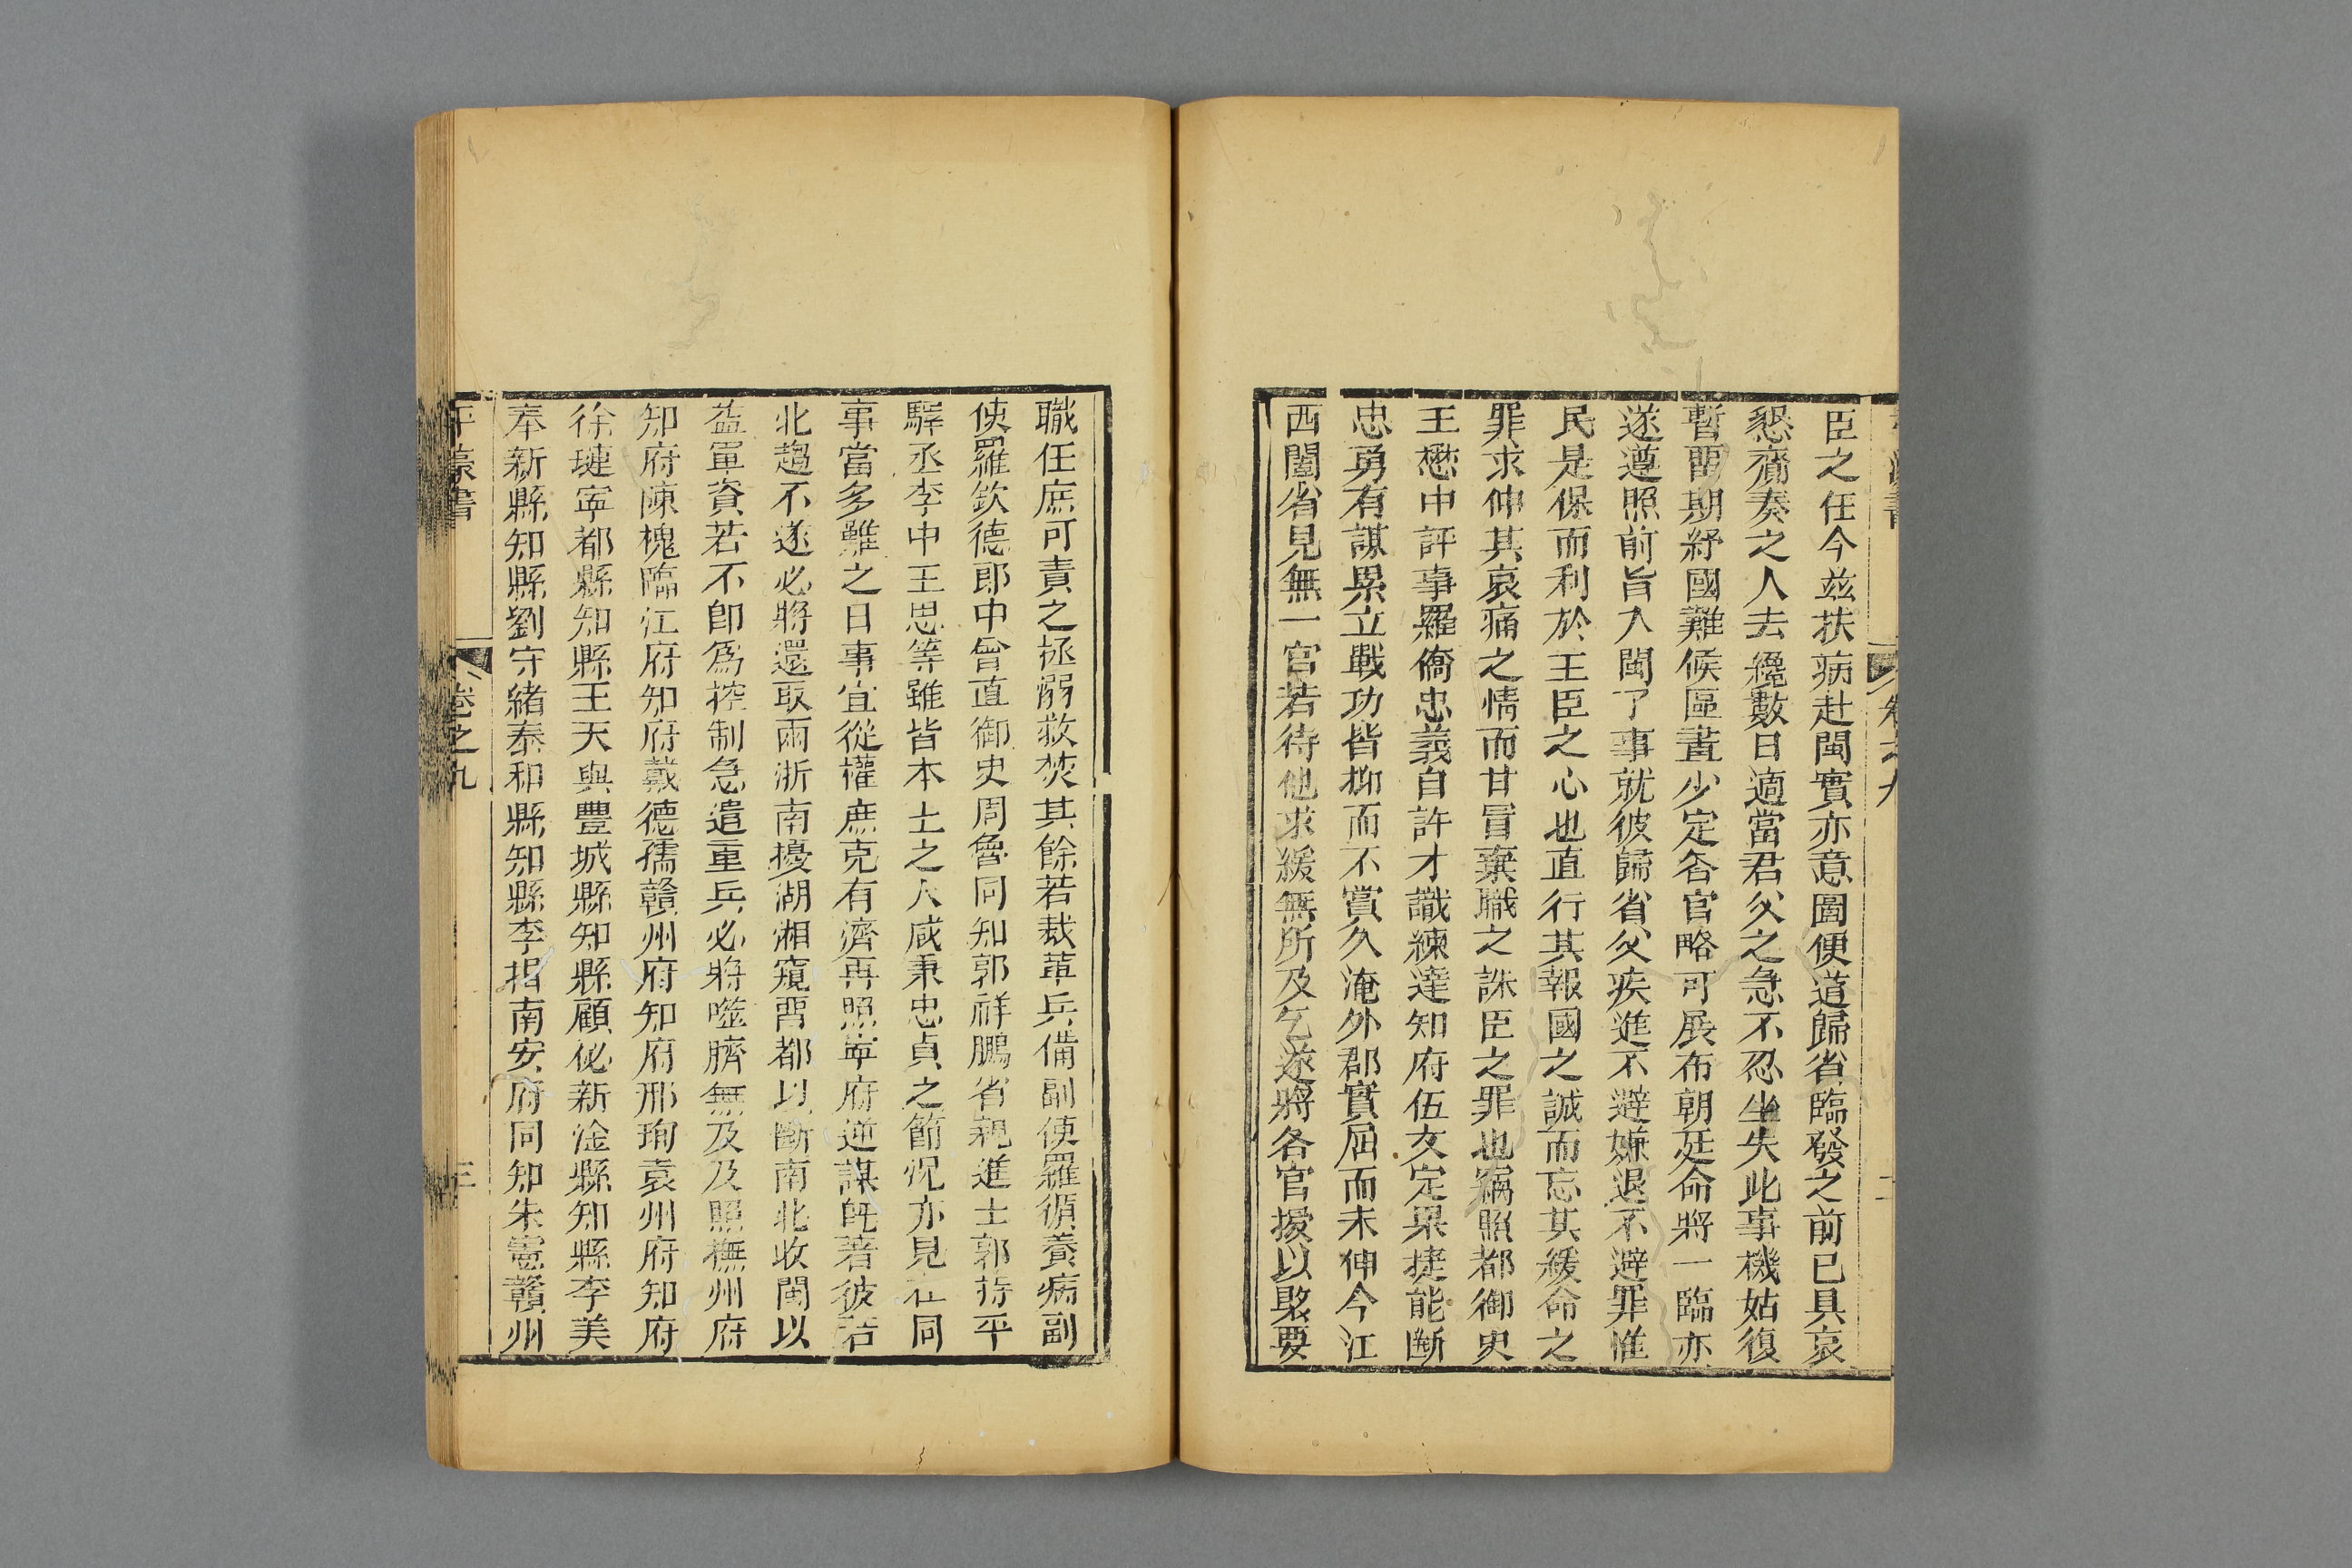 臣之任今茲扶病赴閩實亦意圖便道歸省臨發之前已具哀
懇齎奏之人去纔數日適當君父之急不忍坐失此事機姑復
暫留期紓國難候區畫少定各官略可展布朝廷命將一臨亦
遂遵照前旨入閩了事就彼歸省父疾進不避嫌退不避罪惟
民是保而利於王臣之心也直行其報國之誠而忘其緩命之
罪求伸其哀痛之情而甘冒棄職之誅臣之罪也竊照都御史
王懋中評事羅僑忠義自許才識練達知府伍文定果捷能斷
忠勇有謀累立戰功皆抑而不賞久淹外郡實屈而未伸今江
西闔省見無一官若待他求緩無所及乞遂將各官授以緊要
職任庶可責之拯溺救焚其餘若裁革兵備副使羅循養病副
使羅欽德郎中曾直御史周魯同知郭祥鵬省親進士郭持平
驛丞李中王思等雖皆本土之人咸秉忠貞之節況亦見在同
事當多難之日事宜從權庶克有濟再照寧府逆謀旣著彼若
北趨不遂必將還取兩浙南擾湖湘窺留都以斷南北收閩以
益軍資若不卽爲控制急遣重兵必將噬臍無及及照撫州府
知府陳槐臨江府知府戴德孺贛州府知府邢珣袁州府知府
徐璉寧都縣知縣王天與豐城縣知縣顧佖新淦縣知縣李美
奉新縣知縣劉守緒泰和縣知縣李楫南安府同知朱憲贛州
平濠書
卷之九
三